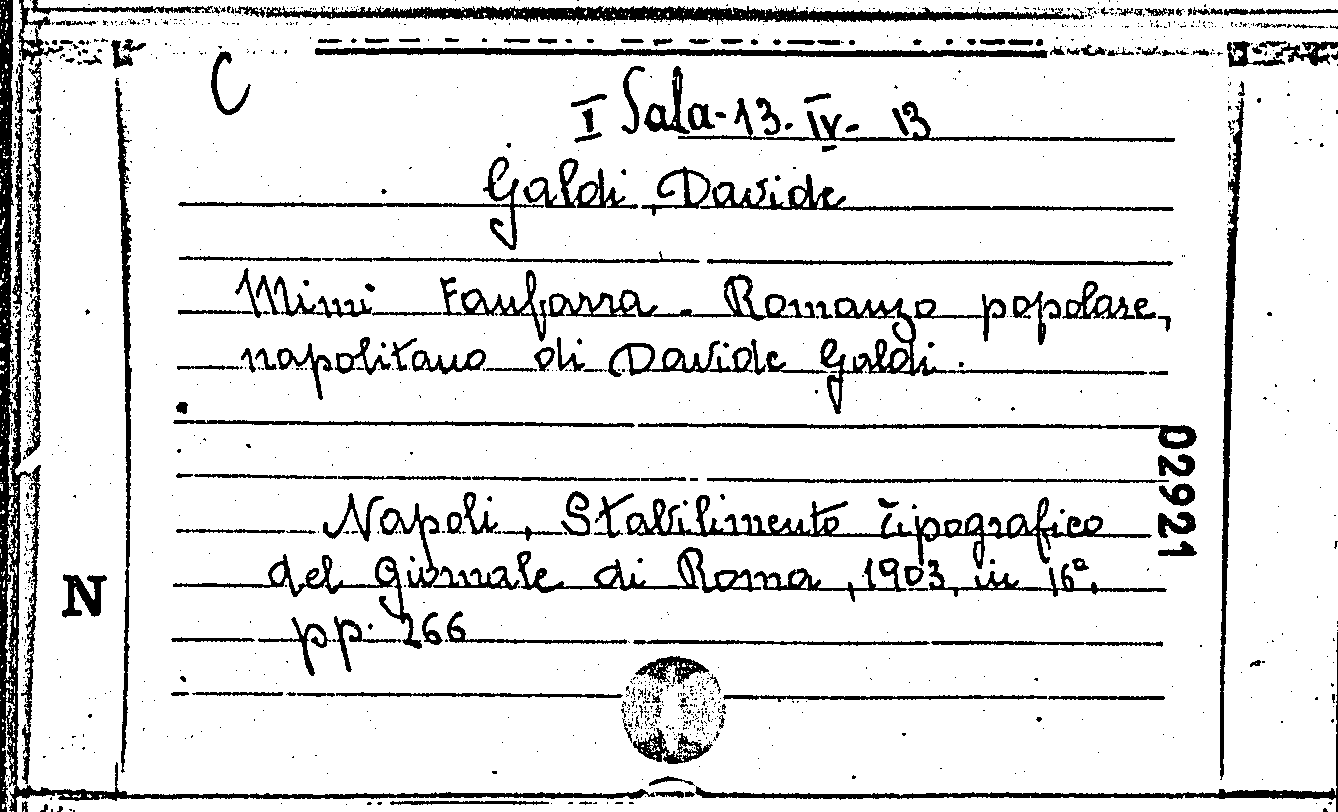 C
I Sala-13. IV- 13
Galdi, Davide
Mimi Fanfarra. Romanzo popolare,
napolitano di Davide Galdi.
02921
Napoli, Stabilimento tipografico
del Giornale di Roma, 1903, in 16º.
N
pp. 266